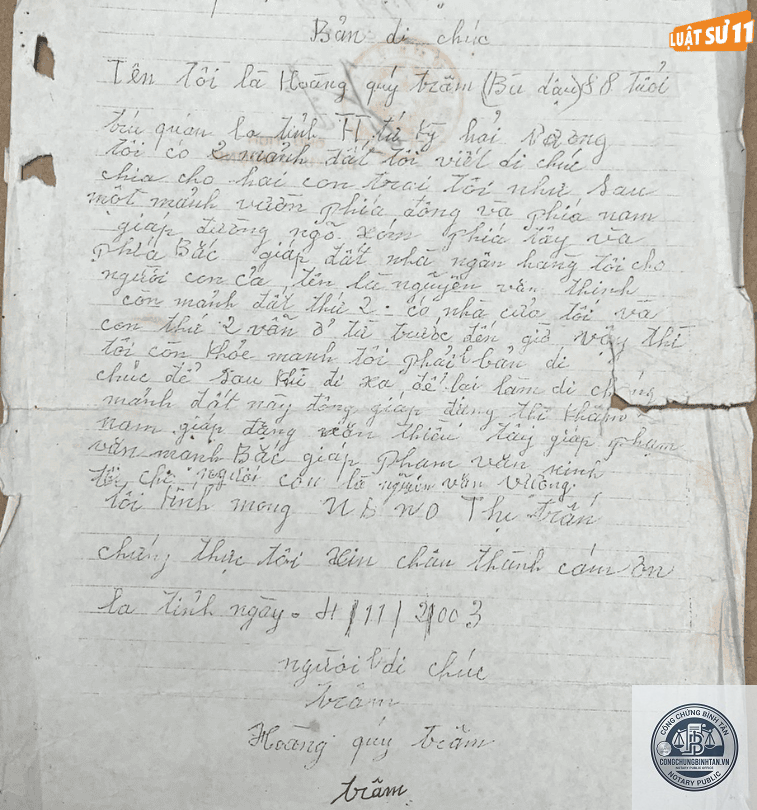 LUẬT SƯ 11
Bản di chúc
Tên tôi là Hoàng quý trâm (Bu dậu) 88 tuổi
trú quán la tỉnh TT tứ kỳ hải dương
tôi có 2 mảnh đất tôi viết di chúc
chia cho hai con trai tôi như sau
một mảnh vườn phía đông và phía nam
giáp đường ngõ xóm phía tây và
phía Bắc giáp đất nhà ngân hàng tôi cho
người con cả tên là nguyễn văn thinh
còn mảnh đất thứ 2 - có nhà cửa tôi và
con thứ 2 vẫn ở từ trước đến giờ vậy thì
tôi còn khỏe mạnh tôi phải bản di
chúc để sau khi đi xa để lại làm di
mảnh đất này đông giáp đừng thi
nam giáp đặng văn thiều tây giáp phạm
văn mạnh Bắc giáp phạm văn ninh
tôi chi người con là nguyễn văn vường
tôi kính mong U B ND Thị trấn
chứng thực tôi xin chân thành cảm ơn
la tỉnh ngày 4/11/2003
người di chúc
trâm
Hoàng quý trâm
trâm
CÔNG CHỨNG BÌNH TÂN
CONGCHUNGBINHTAN.VN
NOTARY PUBLIC OFFICE
NOTARY PUBLIC